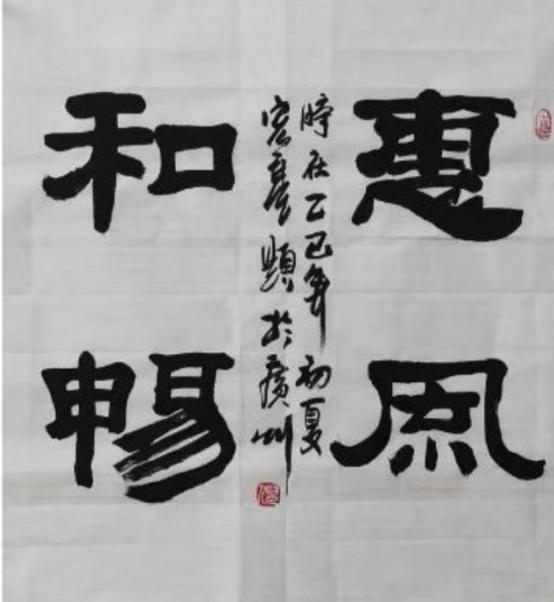 惠風
時在乙巳年初夏
題於廣州
和暢